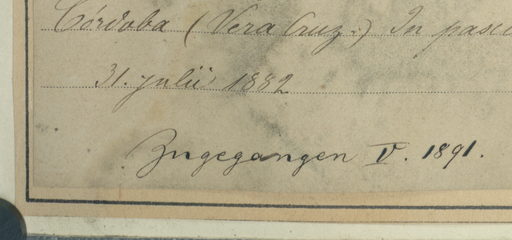 Córdoba (Vera Cruz.) In pascu
31. julii 1882
Zugegangen V. 1891.